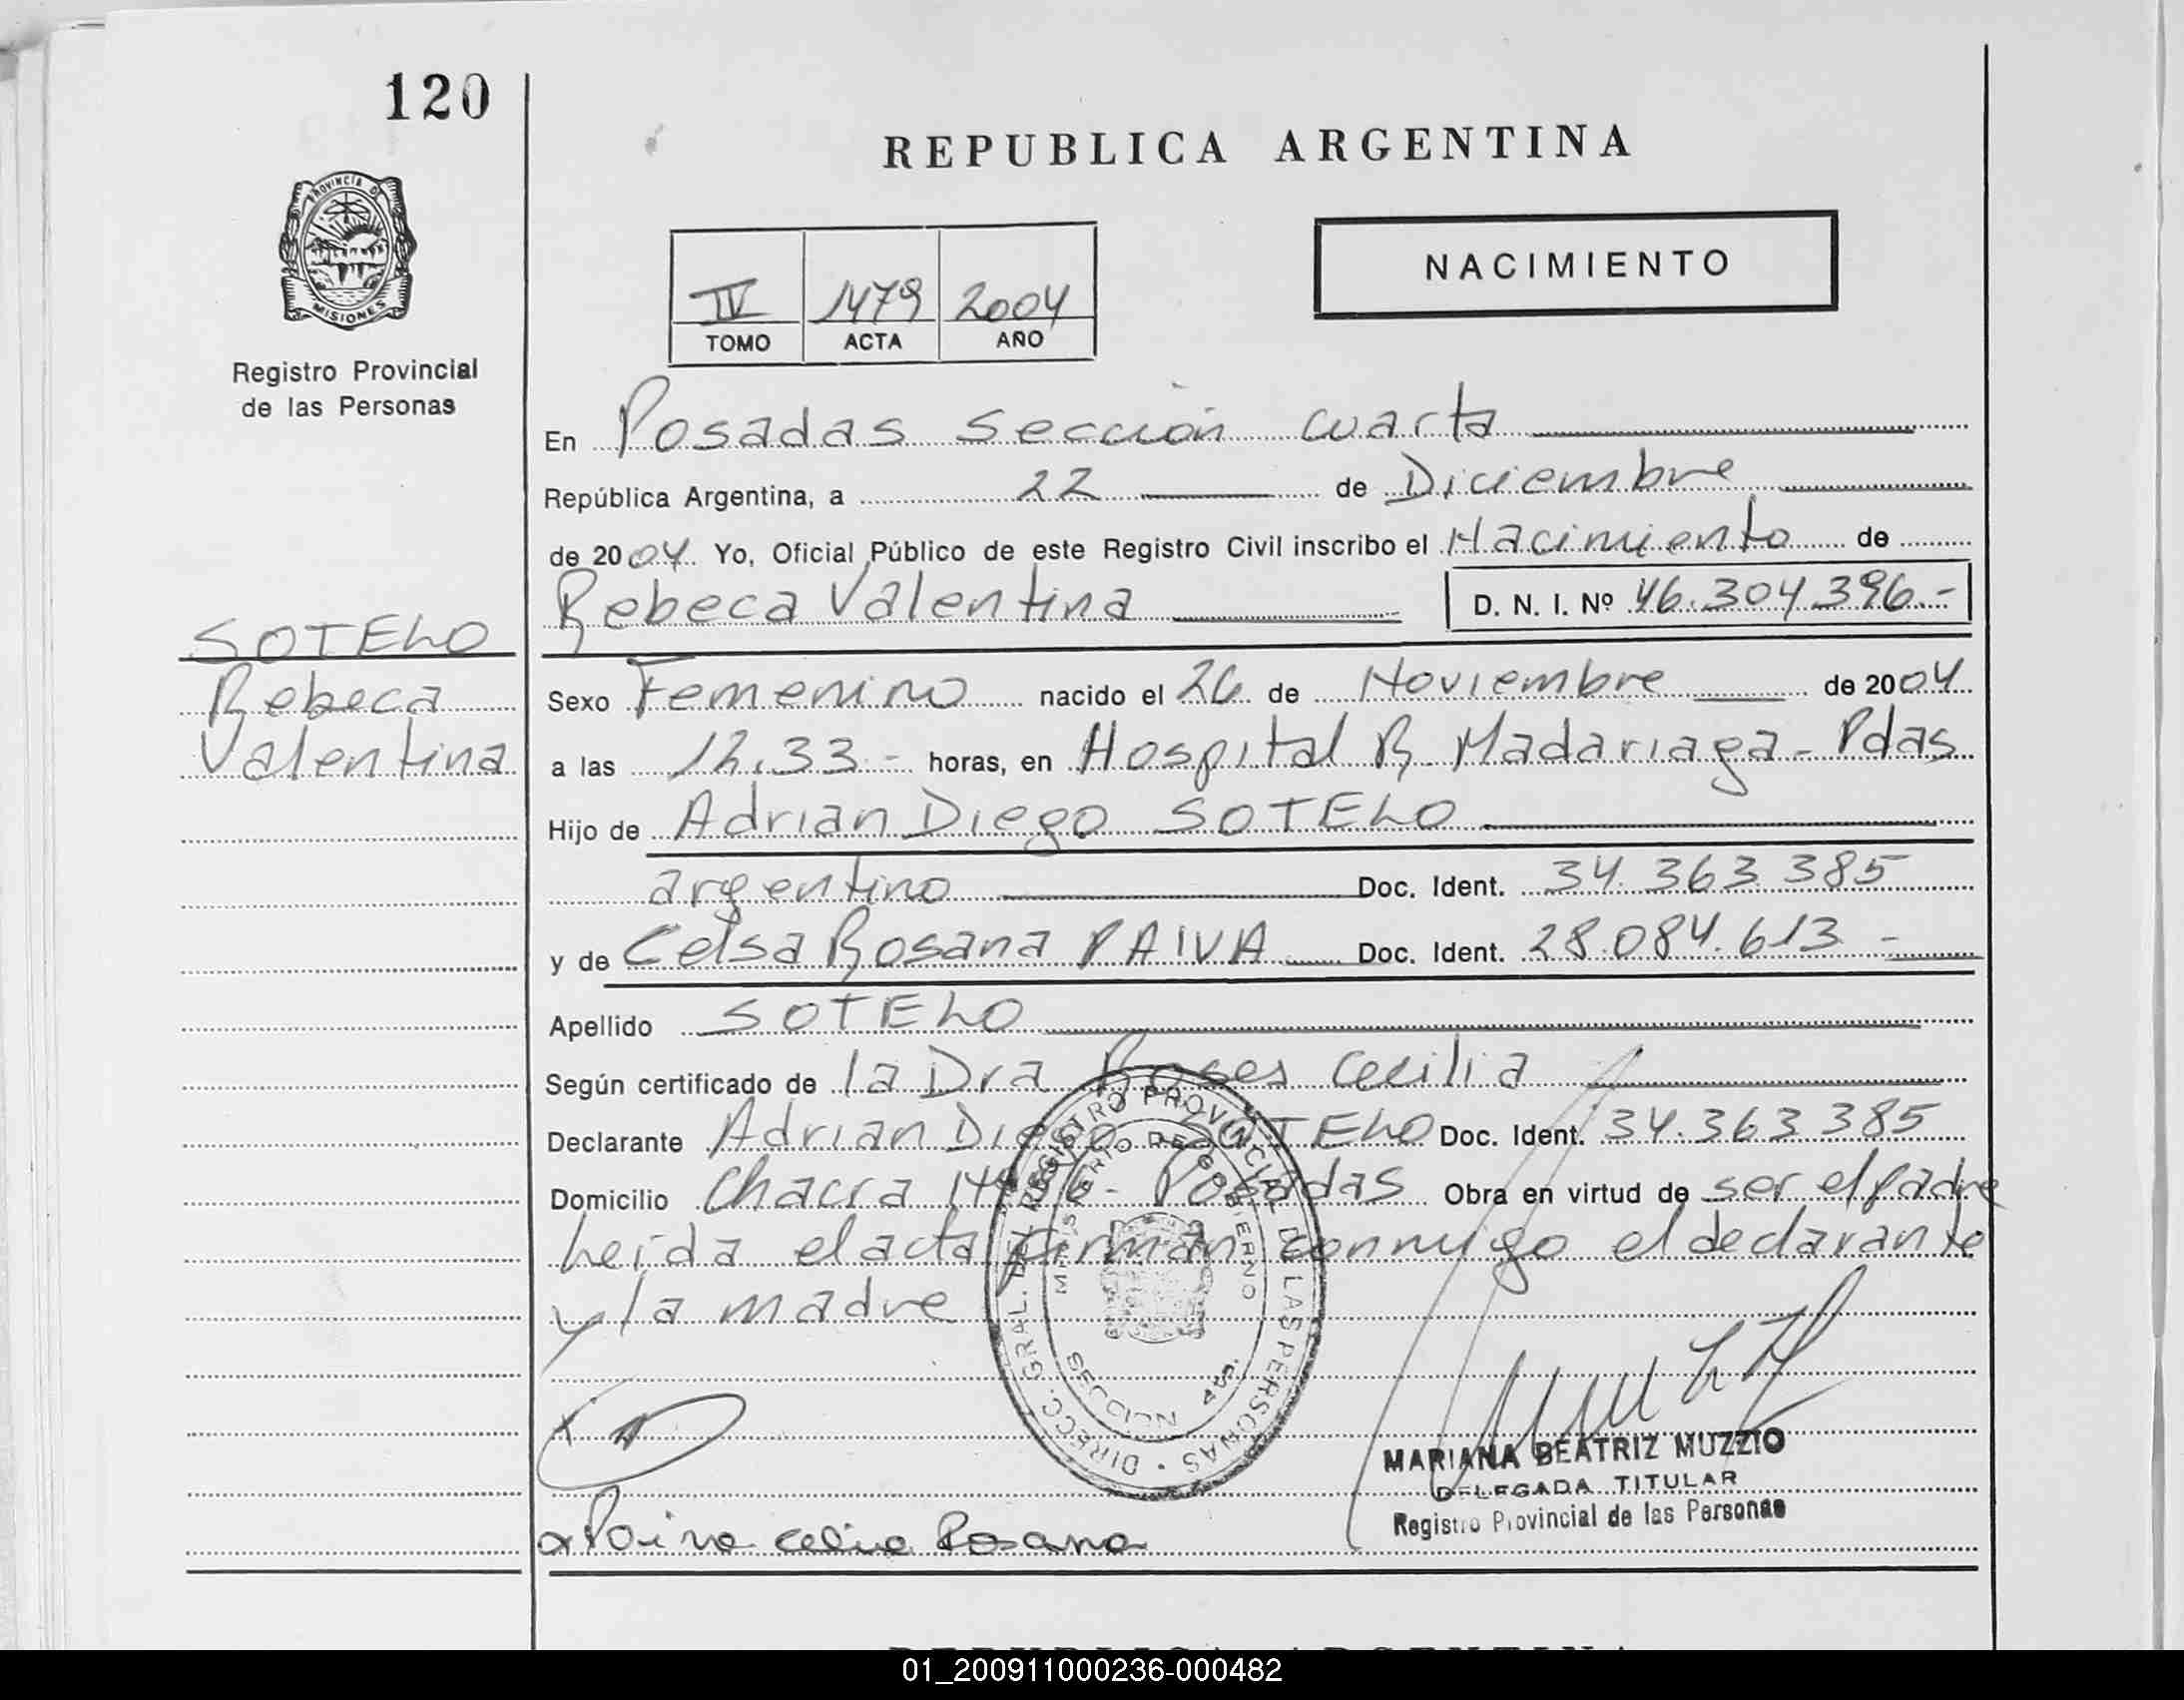 120
REPUBLICA ARGENTINA
PROVINCIA D
MISIONES
Registro Provincial
de las Personas
NACIMIENTO
IV 1479 2004
TOMO ACTA AÑO
En Posadas sección cuarta
República Argentina, a 22 de Diciembre
de 2004 Yo, Oficial Público de este Registro Civil inscribo el Nacimiento de
Rebeca Valentina D. N. I. Nº 46.304.396.-
SOTELO
Rebeca
Valentina
Sexo Femenino nacido el 26 de Noviembre de 2004
a las 12.33- horas, en Hospital R. Madariaga - Pdas
Hijo de Adrian Diego SOTELO
argentino Doc. Ident. 34.363.385
y de Celsa Rosana PAIVA Doc. Ident. 28.084.613.-
Apellido SOTELO
Según certificado de la Dra Roses Cecilia
Declarante Adrian Diego SOTELO Doc. Ident. 34.363.385
Domicilio Chacra - Posadas Obra en virtud de ser el padre
Leída el acta firman conmigo el declarante
y la madre
DIRECC. GRAL. DEL REGISTRO PROVINCIAL DE LAS PERSONAS
MINISTERIO DE GOBIERNO
SECCION 4ta.
MARIANA BEATRIZ MUZZIO
DELEGADA TITULAR
Registro Provincial de las Personas
x Paiva Celsa Rosana
REPUBLICA ARGENTINA
01_200911000236-000482